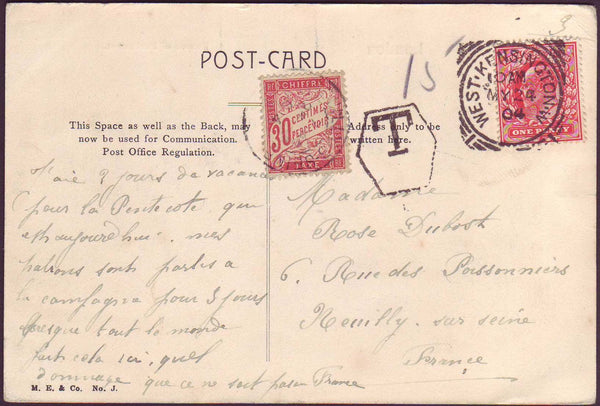 3
15
POST-CARD
WEST·KENSINGTON·W
10 AM
MY 24
04
ONE PENNY
CHIFFRE
30 CENTIMES
A PERCEVOIR
TAXE
T
This Space as well as the Back, may
now be used for Communication.
Post Office Regulation.
Address only to be
written here.
J'aie 2 jours de vacance
pour la Pentecote, que
est aujourd'hui. mes
patrons sont partis a
la campagne pour 3 jours
presque tout le monde
fait cela ici, quel
dommage que ce ne soit pas en France
Madame
Rose Dubost
6. Rue des Poissonniers
Neuilly. sur seine
France
M. E. & Co. No. J.